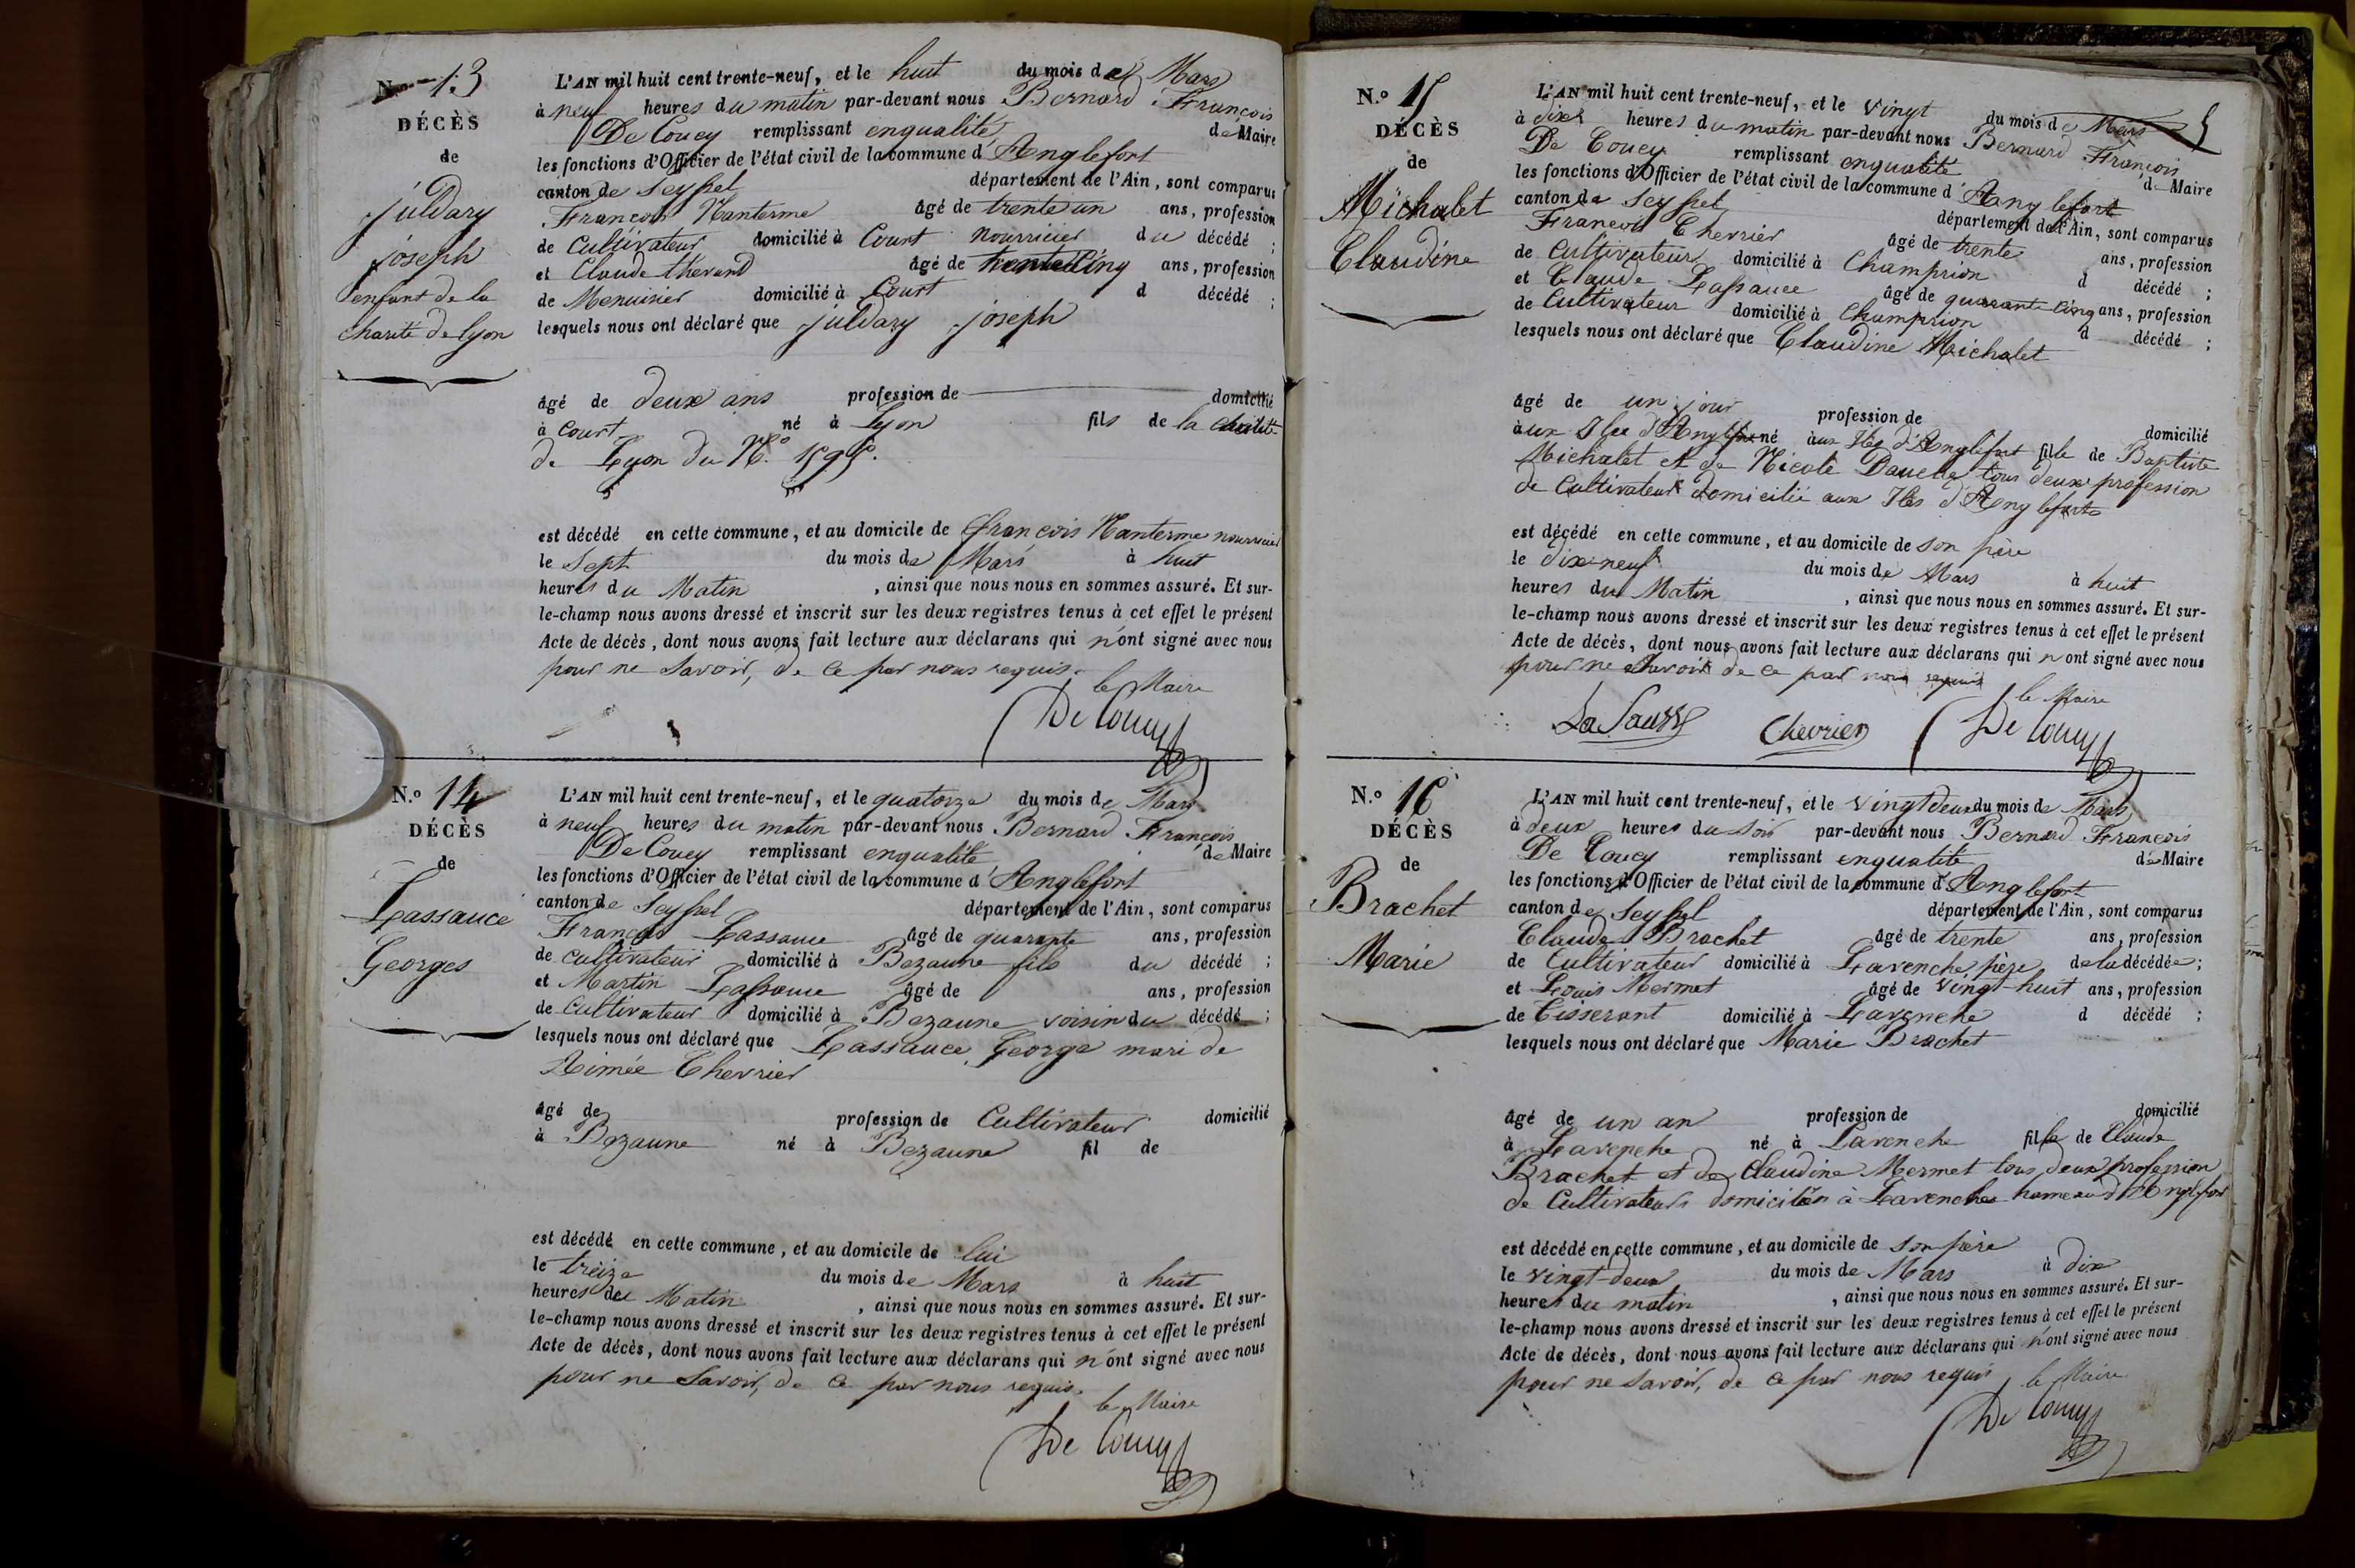 N.o 13
DÉCÈS
de
juldary
joseph
enfant de la
charité de lyon
L'AN mil huit cent trente-neuf, et le huit du mois de Mars
à neuf heures du matin par-devant nous Bernard François
De Coucy remplissant enqualité de Maire
les fonctions d'Officier de l'état civil de la commune d'Anglefort
canton de Seyssel département de l'Ain, sont comparus
François Nanterme âgé de trente un ans, profession
de Cultivateur domicilié à Court nourricier du décédé ;
et Claude thévand âgé de trente cinq ans, profession
de Menuisier domicilié à Court d décédé ;
lesquels nous ont déclaré que juldary joseph
âgé de deux ans profession de domicilié
à Court né à Lyon fils de la charité
de Lyon du N.o 1595.
est décédé en cette commune, et au domicile de françois Nanterme nourricier
le Sept du mois de Mars à huit
heures du Matin , ainsi que nous nous en sommes assuré. Et sur-
le-champ nous avons dressé et inscrit sur les deux registres tenus à cet effet le présent
Acte de décès, dont nous avons fait lecture aux déclarans qui n'ont signé avec nous
pour ne Savoir, de ce par nous requis.
le Maire
De Coucy
N.o 14
DÉCÈS
de
Lassauce
Georges
L'AN mil huit cent trente-neuf, et le quatorze du mois de Mars
à neuf heures du matin par-devant nous Bernard François
De Coucy remplissant enqualité de Maire
les fonctions d'Officier de l'état civil de la commune d'Anglefort
canton de Seyssel département de l'Ain, sont comparus
François Lassauce âgé de quarante ans, profession
de cultivateur domicilié à Bezaune fils du décédé ;
et Martin Lassauce âgé de ans, profession
de cultivateur domicilié à Bezaune voisin du décédé ;
lesquels nous ont déclaré que Lassauce George mari de
Aimée Chevrier
âgé de profession de Cultivateur domicilié
à Bezaune né à Bezaune fil de
est décédé en cette commune, et au domicile de lui
le treize du mois de Mars à huit
heures du Matin , ainsi que nous nous en sommes assuré. Et sur-
le-champ nous avons dressé et inscrit sur les deux registres tenus à cet effet le présent
Acte de décès, dont nous avons fait lecture aux déclarans qui n'ont signé avec nous
pour ne Savoir, de ce par nous requis.
le Maire
De Coucy
N.o 15
DÉCÈS
de
Michalet
Claudine
L'AN mil huit cent trente-neuf, et le vingt du mois de Mars
à dix heures du matin par-devant nous Bernard François
De Coucy remplissant enqualité de Maire
les fonctions d'Officier de l'état civil de la commune d'Anglefort
canton de Seyssel département de l'Ain, sont comparus
François Chevrier âgé de trente ans, profession
de Cultivateur domicilié à Champrion d décédé ;
et Claude Lassauce âgé de quarante cinq ans, profession
de Cultivateur domicilié à Champrion d décédé ;
lesquels nous ont déclaré que Claudine Michalet
âgé de un jour profession de domicilié
aux Iles d'Anglefort né aux Iles d'Anglefort fille de Baptiste
Michalet et de Nicole tous deux profession
de Cultivateur domicilié aux Iles d'Anglefort
est décédé en cette commune, et au domicile de son père
le dix neuf du mois de Mars à huit
heures du Matin , ainsi que nous nous en sommes assuré. Et sur-
le-champ nous avons dressé et inscrit sur les deux registres tenus à cet effet le présent
Acte de décès, dont nous avons fait lecture aux déclarans qui n ont signé avec nous
pour ne Savoir de ce par nous requis
le Maire
LaSausse Chevrier De Coucy
N.o 16
DÉCÈS
de
Brachet
Marie
L'AN mil huit cent trente-neuf, et le vingt deux du mois de Mars
à deux heures du Soir par-devant nous Bernard François
De Coucy remplissant enqualité de Maire
les fonctions d'Officier de l'état civil de la commune d'Anglefort
canton de Seyssel département de l'Ain, sont comparus
Claude Brachet âgé de trente ans, profession
de Cultivateur domicilié à Lavenche père de la décédée ;
et Louis Mermet âgé de vingt-huit ans, profession
de Tisserant domicilié à Lavenche d décédé ;
lesquels nous ont déclaré que Marie Brachet
âgé de un an profession de domicilié
à Lavenche né à Lavenche fille de Claude
Brachet et de Claudine Mermet tous deux profession
de Cultivateurs domiciliés à Lavenche hameau d'Anglefort
est décédé en cette commune, et au domicile de Son père
le vingt-deux du mois de Mars à dix
heures du matin , ainsi que nous nous en sommes assuré. Et sur-
le-champ nous avons dressé et inscrit sur les deux registres tenus à cet effet le présent
Acte de décès, dont nous avons fait lecture aux déclarans qui n'ont signé avec nous
pour ne Savoir, de ce par nous requis
le Maire
De Coucy